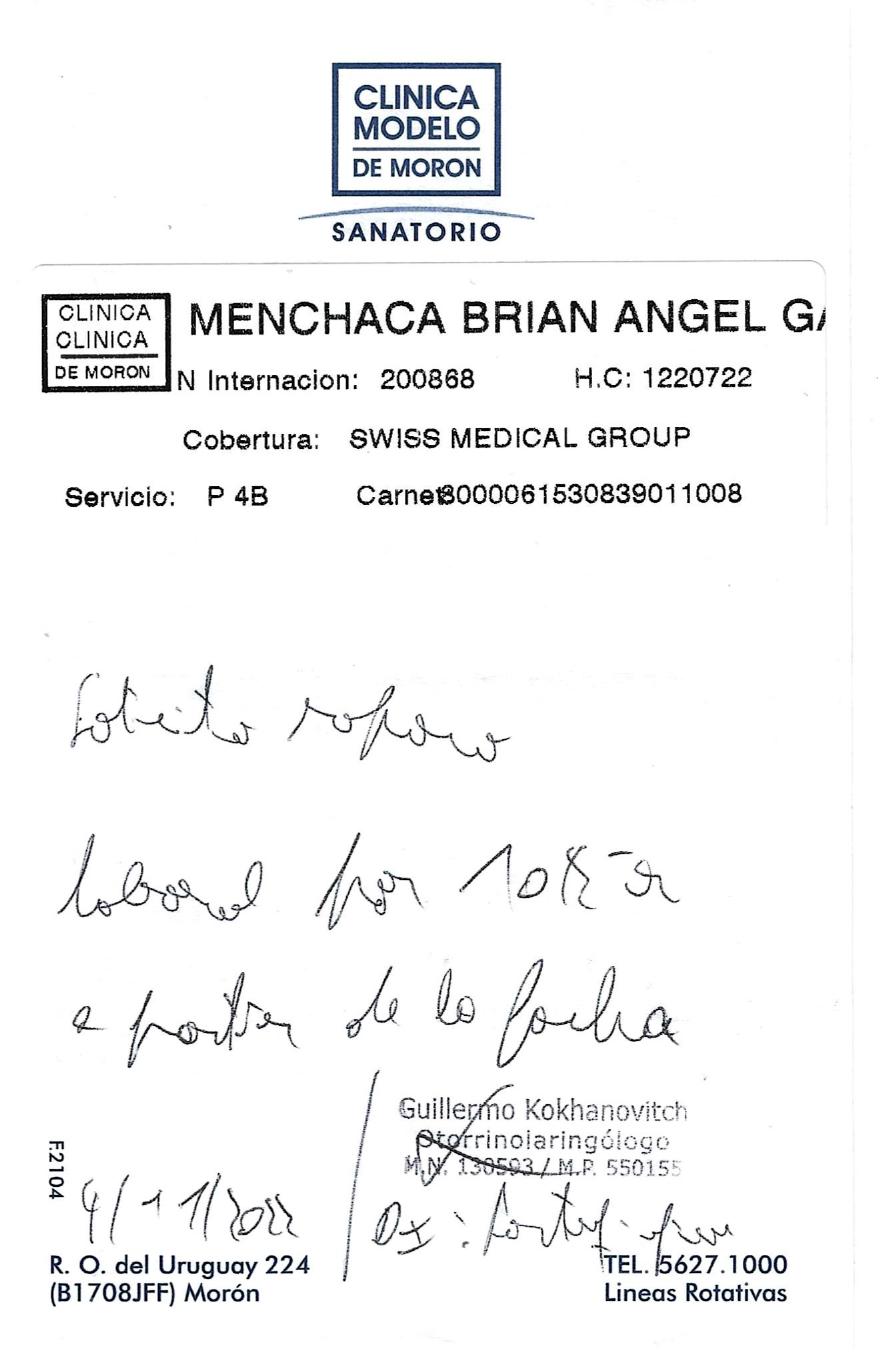 CLINICA
MODELO
DE MORON
SANATORIO
CLINICA
CLINICA
DE MORON
MENCHACA BRIAN ANGEL GA
N Internacion: 200868 H.C: 1220722
Cobertura: SWISS MEDICAL GROUP
Servicio: P 4B Carnet 8000061530839011008
Solicito reposo
laboral por 10
a partir de la fecha
Guillermo Kokhanovitch
Otorrinolaringólogo
M.N. 130593 / M.P. 550155
F.2104
4/11/2022
Dx:
R. O. del Uruguay 224
(B1708JFF) Morón
TEL. 5627.1000
Lineas Rotativas